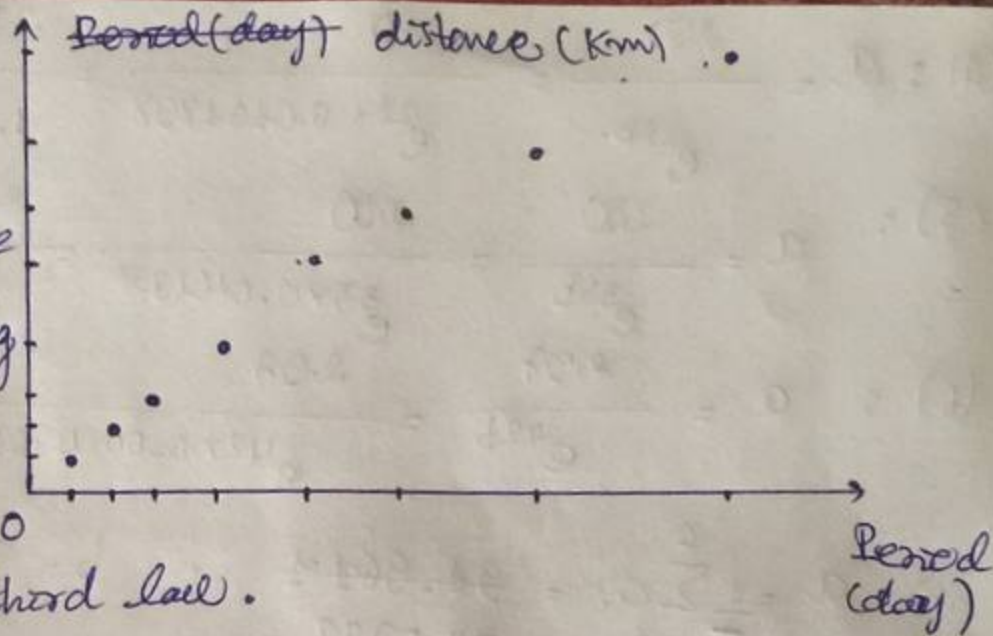 Period(day) distance (Km)
0
Period
(day)
law.